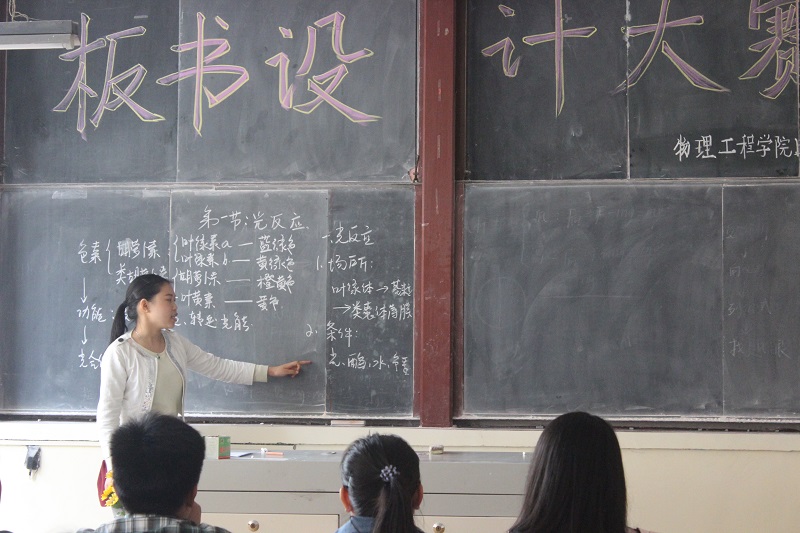 板书设计大赛
物理工程学院
第一节:光反应
色素
叶绿素a — 蓝绿色
叶绿素b — 黄绿色
类胡萝卜素
胡萝卜素 — 橙黄色
叶黄素 — 黄色
功能:
转递光能
光合
一、光反应
1. 场所:
叶绿体→基粒
→类囊体薄膜
2. 条件:
光、酶、水、色素